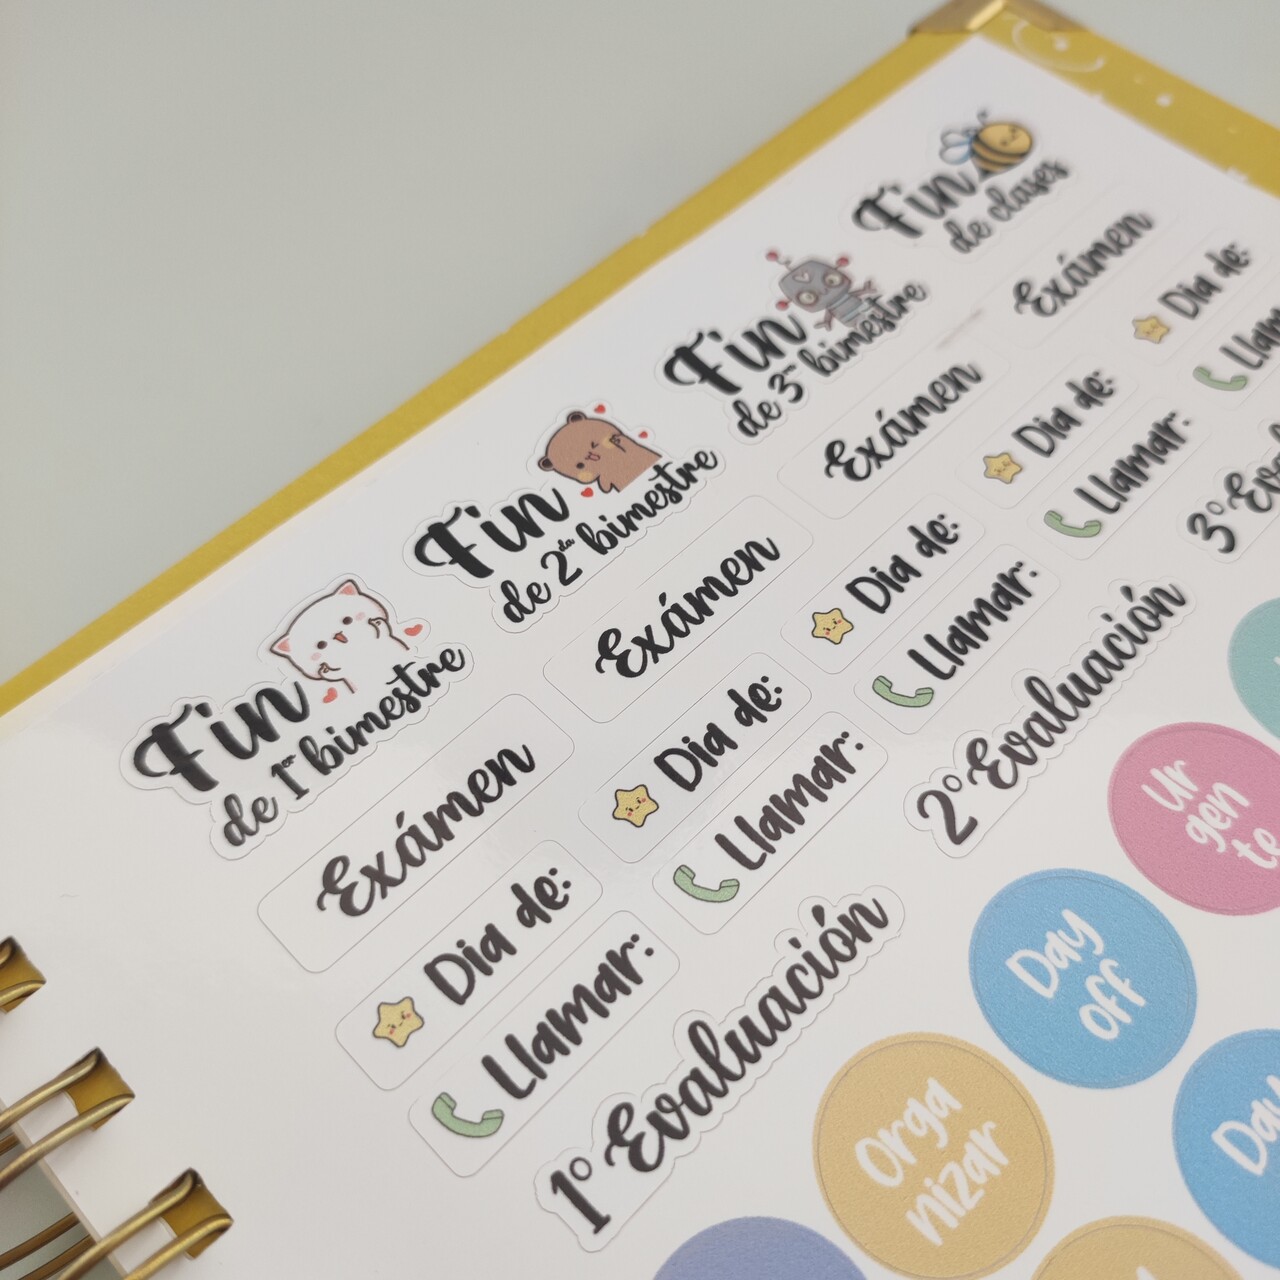 Fin
de 1er bimestre
Fin
de 2da bimestre
Fin
de 3er bimestre
Fin
de clases
Exámen
Exámen
Exámen
Exámen
Dia de:
Dia de:
Dia de:
Dia de:
Llamar:
Llamar:
Llamar:
1º Evaluación
2º Evaluación
Ur
gen
te
Day
off
Orga
nizar